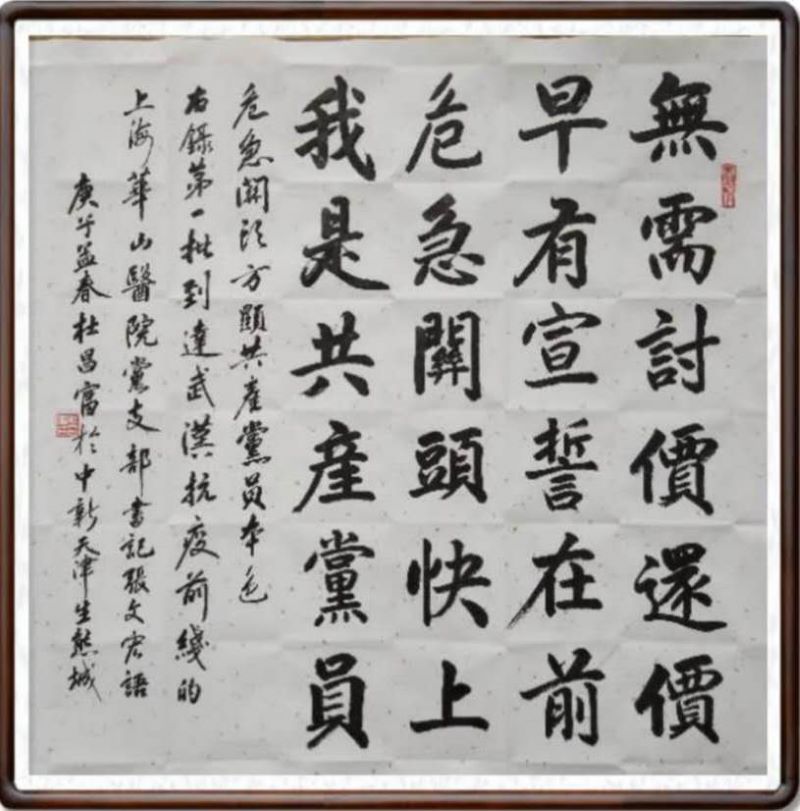 無需討價還價
早有宣誓在前
危急關頭快上
我是共産黨員
危急關頭方顯共産黨員本色
右錄第一批到達武漢抗疫前綫的
上海華山醫院黨支部書記張文宏語
庚子孟春杜昌富於中新天津生態城